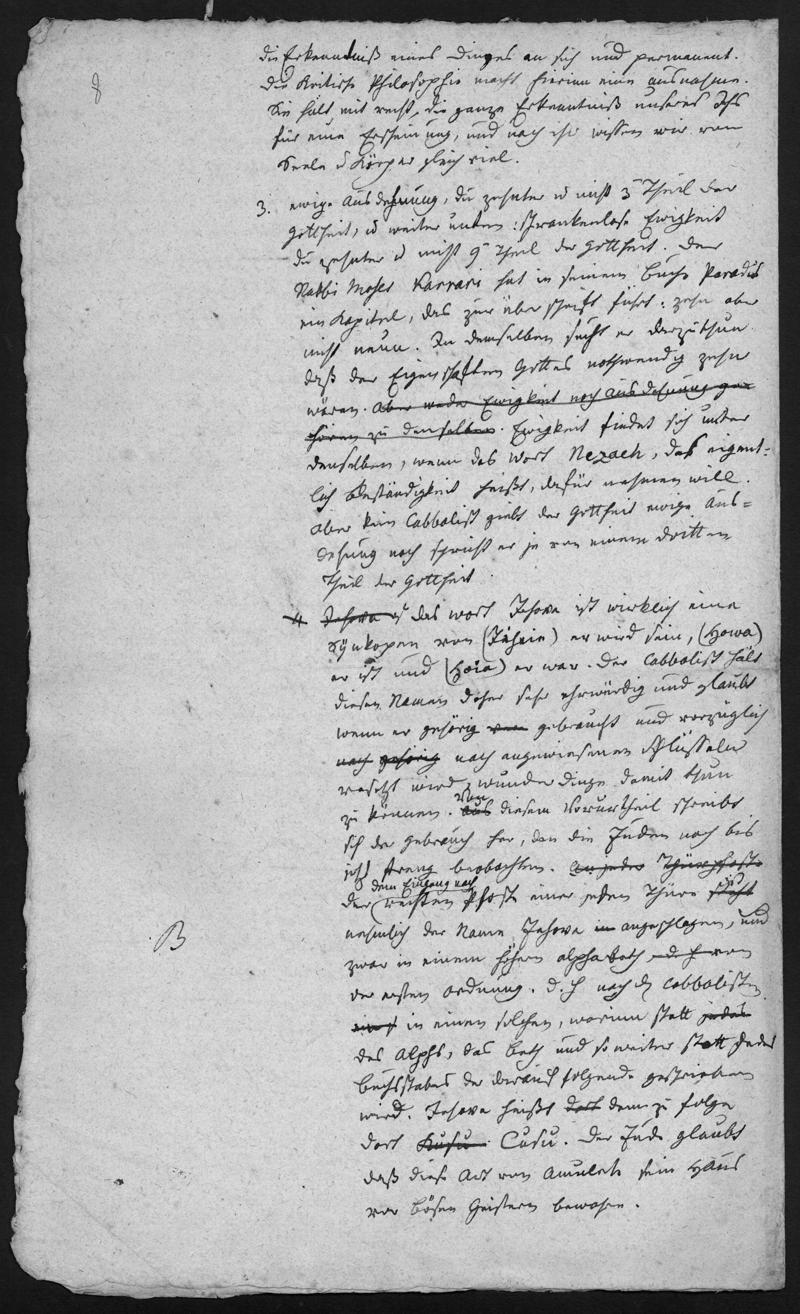 8
die Erkenntniß eines Dinges an sich und permanent.
Die Kritische Philosophie macht hierinn eine ausnahme.
Sie hält mit recht, die ganze Erkenntniß unseres Ichs
für eine Erscheinung, und nach ihr wissen wir von
Seele u Körper gleich viel.
3. ewige Ausdehnung, die zehnter u nicht 3r Theil der
Gottheit, u weiter unten: schrankenlose Ewigkeit
die zehnter u nicht 9r Theil der Gottheit. Der
Rabbi Moses hat in seinem Buche Paradis
ein Kapitel, das zur überschrift führt: zehn aber
nicht neun. In demselben sucht er darzuthun
daß der Eigenschaften Gottes nothwendig zehn
wären. Aber weder Ewigkeit noch Ausdehnung ge
hören zu denselben. Ewigkeit findet sich unter
denselben, wenn das Wort Nezach, das eigent-
lich Beständigkeit heißt, dafür nehmen will.
Aber kein Cabbalist giebt der Gottheit ewige Aus-
dehnung noch spricht er je von einem dritten
Theil der Gottheit.
4 Jehova ist das wort Jehova ist wirklich eine
Synkopen von (Jiheie) er wird sein, (Howa)
er ist und (Haia) er war. Der Cabbalist hält
diesen Namen daher sehr ehrwürdig und glaubt
wenn er gehörig von gebraucht und vorzüglich
nach gehörig nach angewiesenen Schlüsseln
versetzt wird, wunderdinge damit thun
zu können. aus von diesem Vorurtheil schreibt
sich der gebrauch her, den die Juden noch bis
jetzt streng beobachten. an jeder Thürpfoste
dem Eingang nach
der rechten Pfoste einer jeden Thüre
nehmlich der Name Jehova in angeschlagen, und
B
zwar in einem höhern alphabeth d. h von
der ersten Ordnung. d. h nach den Cabbalisten
in einen solchen, worinn statt jedes
des Alephs, das Beth und so weiter statt jedes
Buchstabes der darauf folgende geschrieben
wird. Jehova heißt dort dem zu folge
dort Kusu Cusu. Der Jude glaubt
daß diese Art von Amulete sein Haus
vor bösen Geistern bewahre.